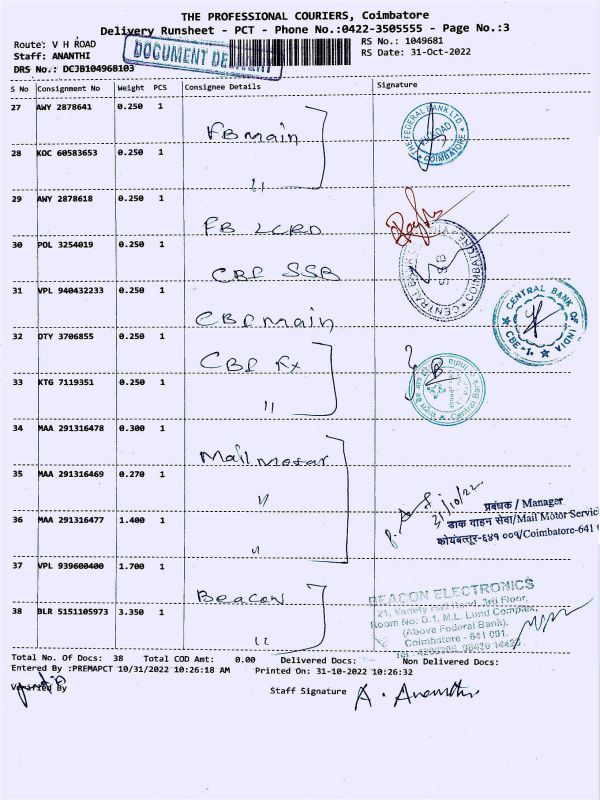 THE PROFESSIONAL COURIERS, Coimbatore
Delivery Runsheet - PCT - Phone No.:0422-3505555 - Page No.:3
Route: V H ROAD
RS No.: 1049681
Staff: ANANTHI
RS Date: 31-Oct-2022
DRS No.: DCJB104968103
DOCUMENT DE
S No Consignment No Weight PCS Consignee Details Signature
27 AWY 2878641 0.250 1
FB main
THE FEDERAL BANK LTD. COIMBATORE
28 KOC 60583653 0.250 1
"
29 AWY 2878618 0.250 1
FB LCRD
30 POL 3254019 0.250 1
CBI SSB
SSB
31 VPL 940432233 0.250 1
CBI main
CENTRAL BANK OF INDIA CBE-1.
32 OTY 3706855 0.250 1
CBI Fx
33 KTG 7119351 0.250 1
"
34 MAA 291316478 0.300 1
Mail motar
35 MAA 291316469 0.270 1
"
31/10/22
प्रबंधक / Manager
36 MAA 291316477 1.400 1
डाक वाहन सेवा/Mail Motor Servic
कोयंबत्तूर-६४१ ००१/Coimbatore-641
"
37 VPL 939600400 1.700 1
Beacon
BEACON ELECTRONICS
21, Variety Hall Road, 3rd Floor,
38 BLR 5151105973 3.350 1
Room No: D.1, M.L. Lond Complex,
(Above Federal Bank),
"
Coimbatore - 641 001.
Total No. Of Docs: 38 Total COD Amt: 0.00 Delivered Docs: Non Delivered Docs:
Entered By :PREMAPCT 10/31/2022 10:26:18 AM Printed On: 31-10-2022 10:26:32
Verified By
Staff Signature A. Ananthi